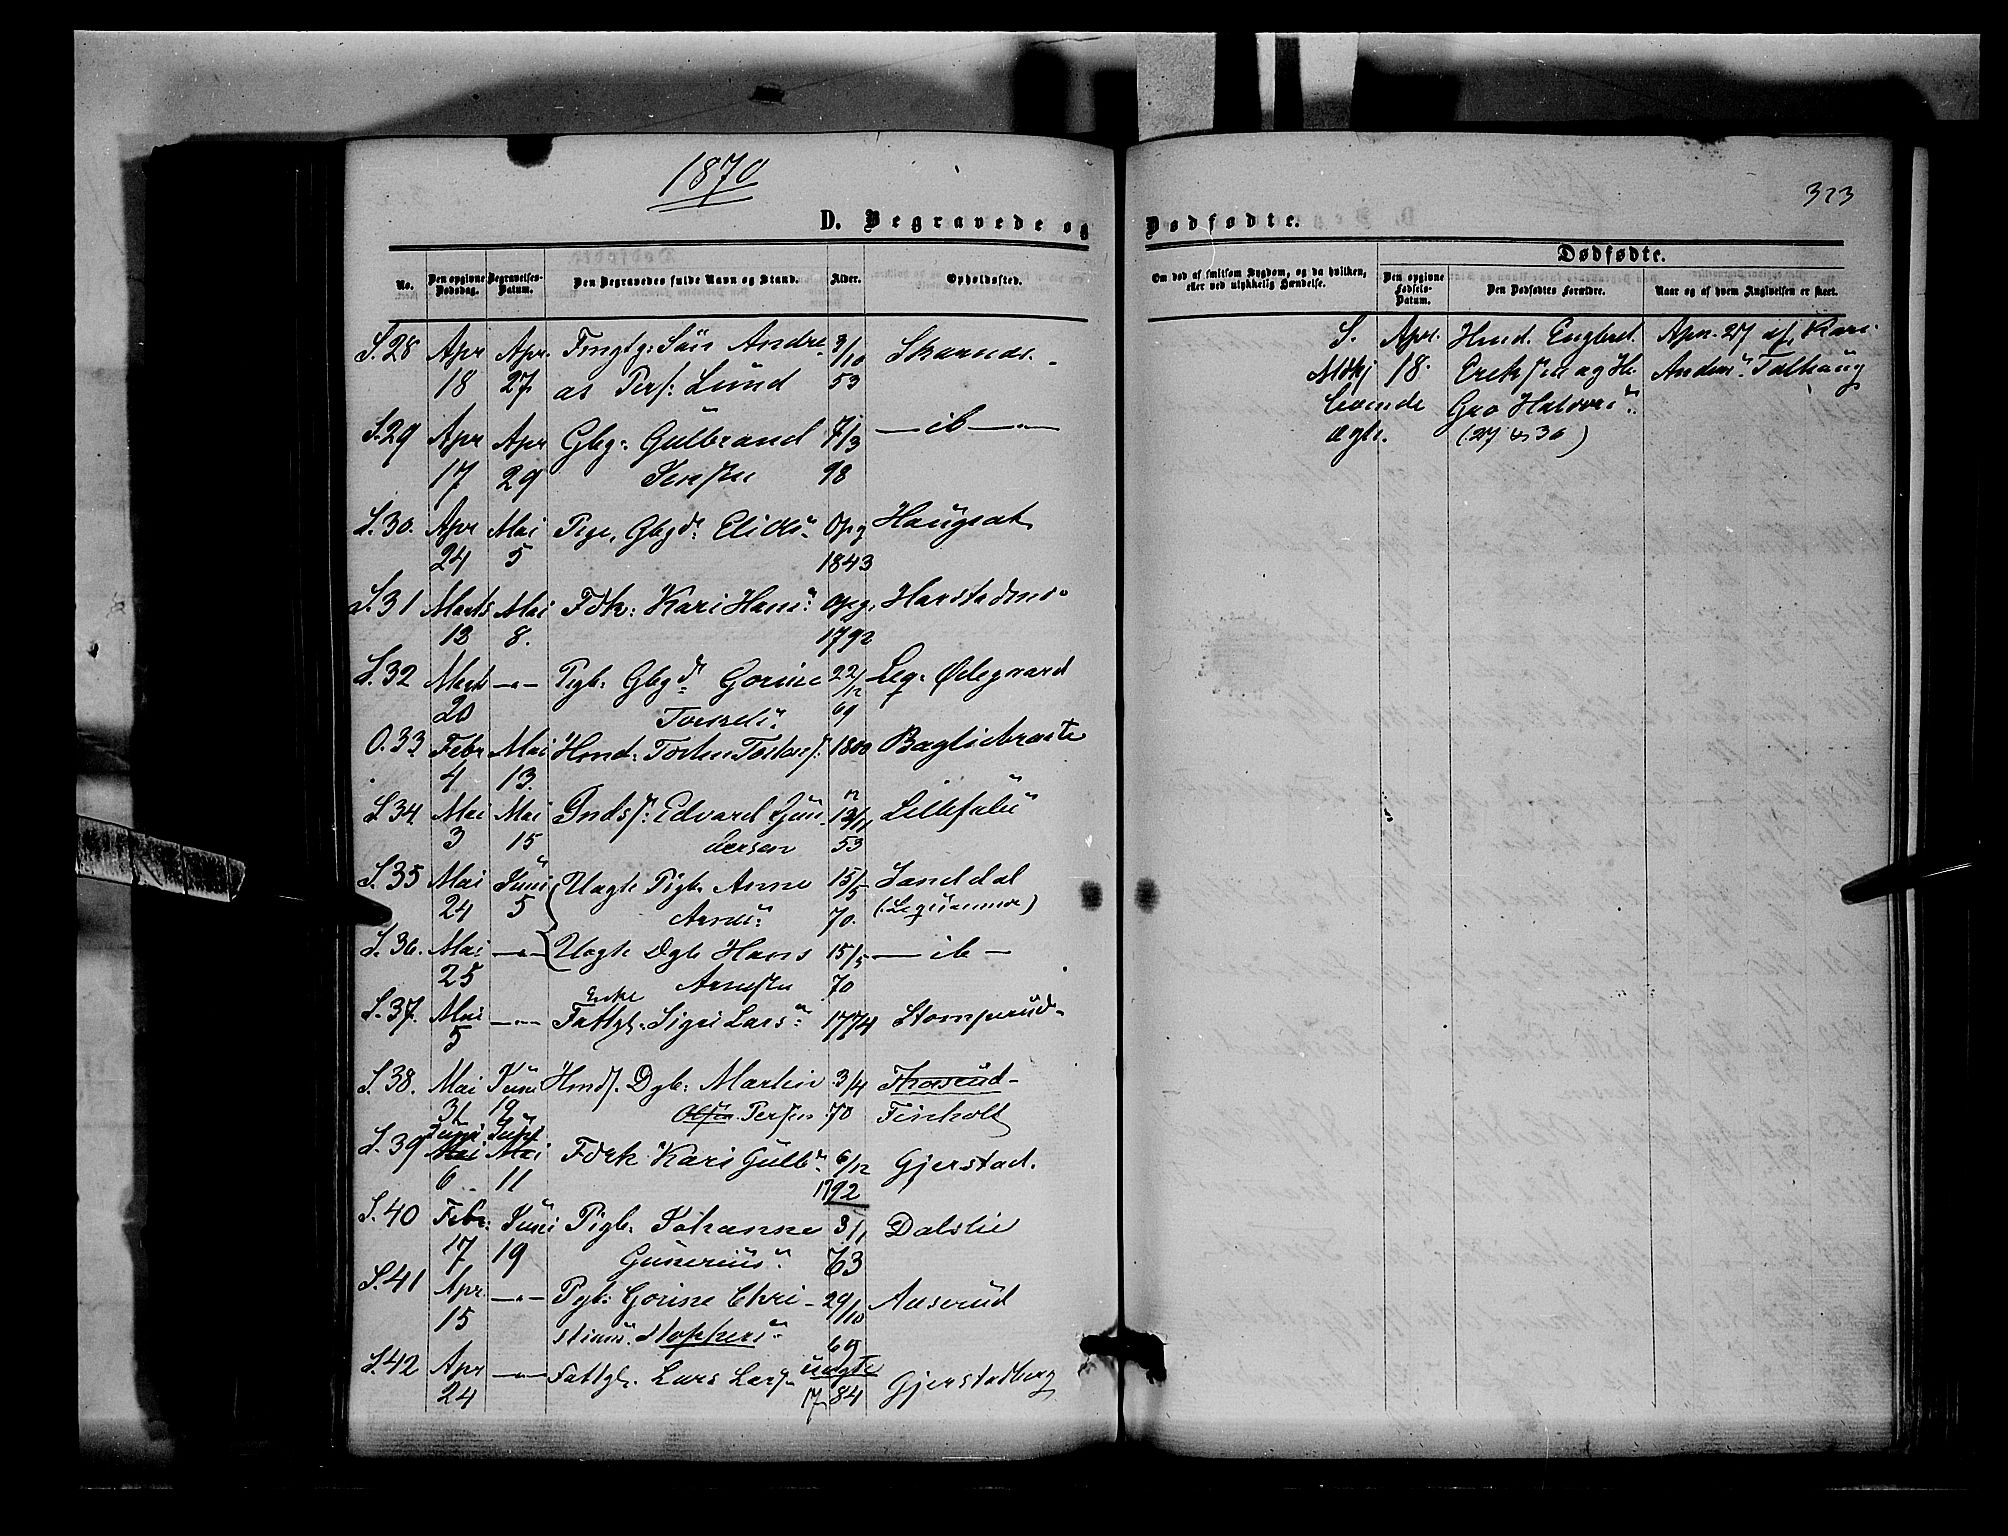 1870
323
D. Begravede og Dødfødte.
Dødfødte.
No.
Den opgivne Dødsdag.
Begravelses-Datum.
Den Begravedes fulde Navn og Stand.
Alder.
Opholdssted.
Om død af smitsom Sygdom, og da hvilken, eller ved ulykkelig Hændelse.
Den opgivne Fødsels-Datum.
Den Dødfødtes Forældre.
Naar og af hvem Angivelsen er skeet.
S. 28 Apr Apr. Søn Andre- 3/10
18 27 as Pers: Lund 53
S. 29 Apr Apr Gbg: Gulbrand 7/3 —ib—
17 29 98
S. 30. Apr Mai Pige, Gbgd: Opg Haugsat
24 5 1843
S. 31 Marts Mai Fdk: Kari Hans: Opg.
12 8. 1792
S. 32 Marts —"— Pigb. Gbgd: Gorine 22/12 Leq. Ødegaard
20 69
O. 33 Febr Mai Hmd: Torsten 1800 Bagliebraate
4 13.
S 34 Mai Mai Indst: Edvard Gun- 12/11
3 15 dersen 53
S. 35 Mai Juni Uægte Pigb. Anne 15/5 Sanddal
24 5 Arnes: 70.
S. 36. Mai —"— Uægte Dgb. Hans 15/5 —ib—
25 Arnesen 70
S. 37. Mai —"— Enke Fattigl. Sigri Lars: 1774 Stomperud
5
S. 38. Mai Juni Dgb. Martin 3/4 Thorsrud-
31 19 Olsen Persen 70 Finholt
S. 39 Juni Juni
Mai Mai Fdrk Kari Gulb: 6/12 Gjerstad.
6 11 1792
S. 40 Febr. Juni Pigb. Johanne 3/1 Dalslie
17 19 Gunerius: 63
S. 41 Apr —"— Pgb. Gorine Chri- 29/10 Aaserud
15 stians: 69
S. 42 Apr —"— Fattigl. Lars Lars. Gjerstadberg
24 1784
S. Apr. Hmd. Engbret Apr. 27 af Kari
18. Ereksen og H. Anders:
levende Gro Halvors:
ægte. (27 & 36)